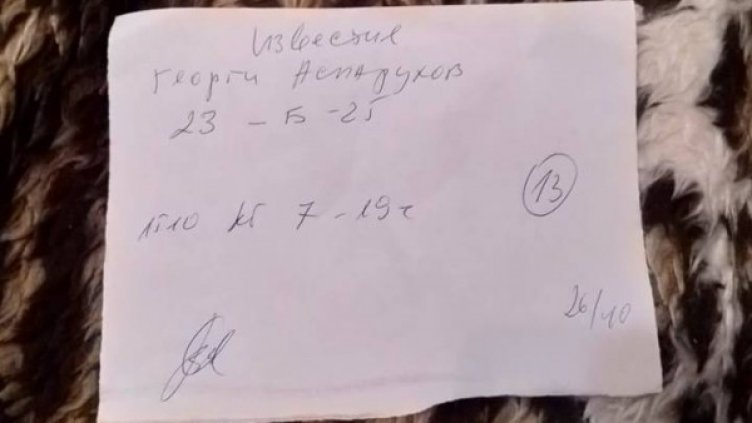 Известие
Георги Аспарухов
23 - Б - 25
13
7 - 19 ч
26/10